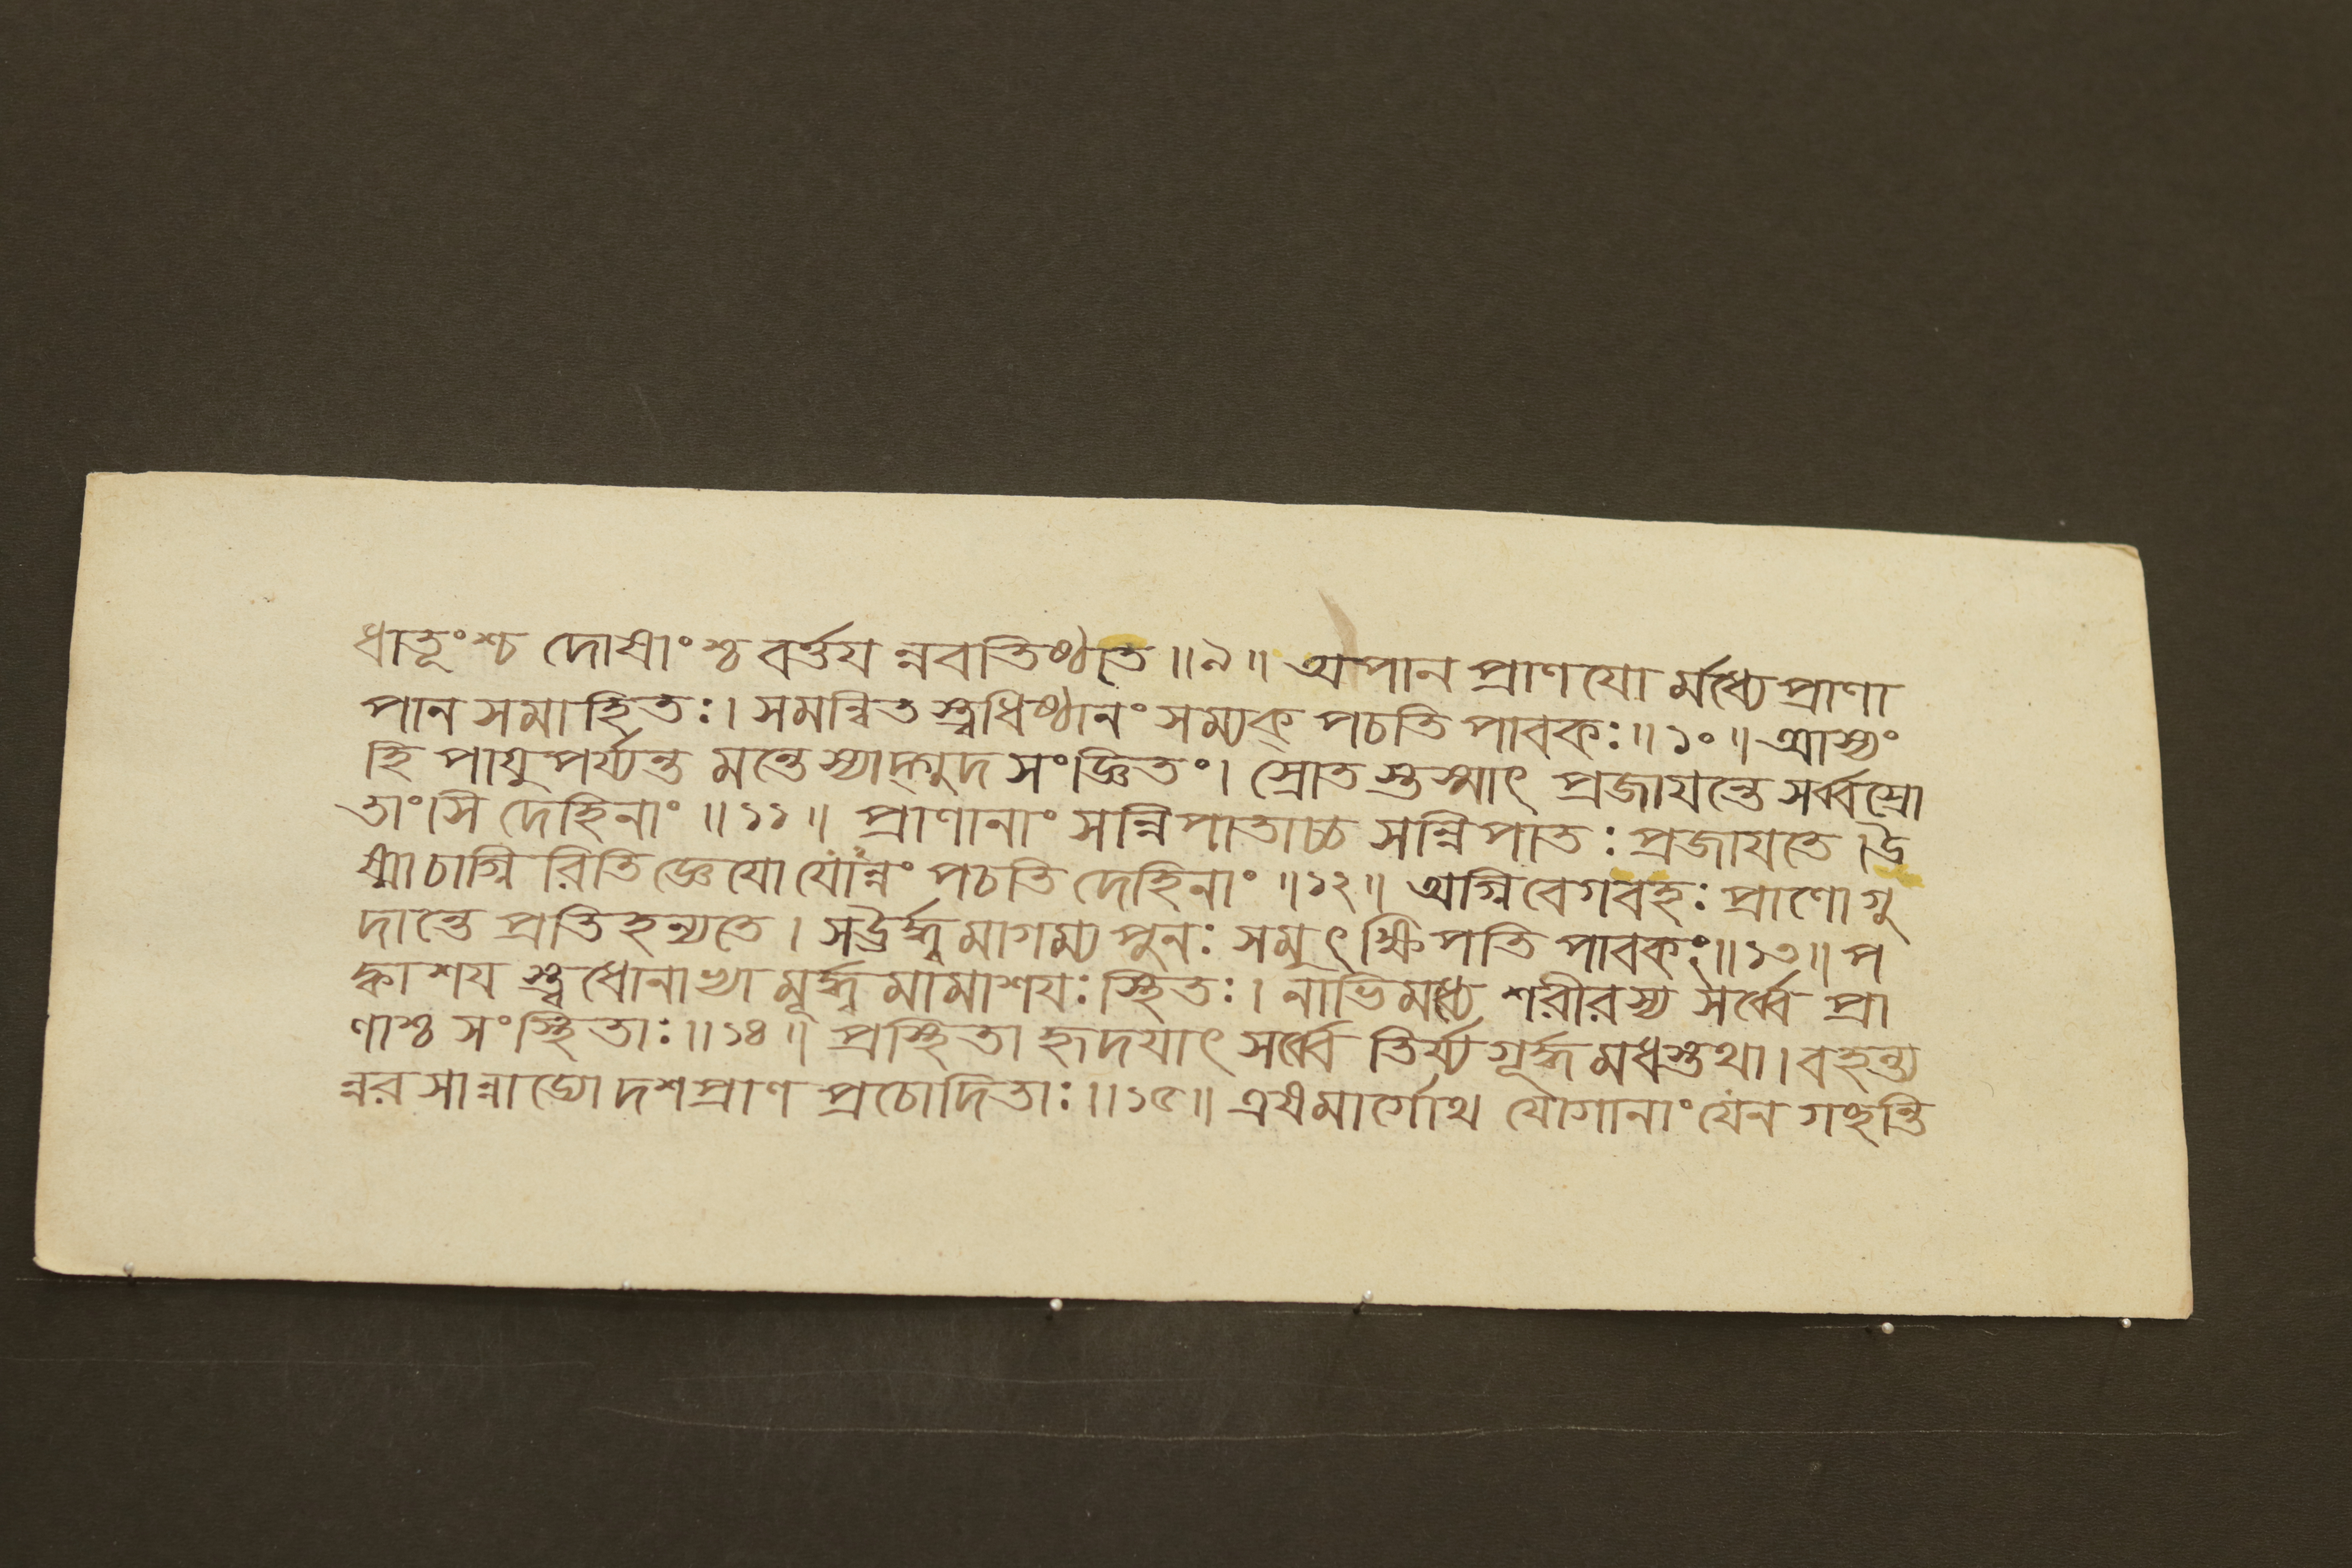 ধাতূংশ্চ দোষাংশ্চ বর্ত্তয ন্নবতিষ্ঠতি ॥৯॥ অপান প্রাণযো র্মধ্যে প্রাণা
পান সমাহিতঃ। সমন্বিত স্ত্বধিষ্ঠানং সম্যক্ পচতি পাবকঃ॥১০॥ আস্যং
হি পাযুপর্য্যন্ত মন্তে স্যাদ্গুদ সংজ্ঞিতং। স্রোত স্তস্মাৎ প্রজাযন্তে সর্ব্বস্রো
তাংসি দেহিনাং ॥১১॥ প্রাণানাং সন্নিপাতাচ্চ সন্নিপাতঃ প্রজাযতে। উ
ষ্মা চাগ্নি রিতি জ্ঞেযো যোন্নং পচতি দেহিনাং ॥১২॥ অগ্নিবেগবহঃ প্রাণো গু
দান্তে প্রতিহন্যতে। সঊর্দ্ধ্ব মাগম্য পুনঃ সমুৎক্ষিপতি পাবকং॥১৩॥ প
ক্বাশয স্ত্বধোনাভ্যা মূর্দ্ধ্ব মামাশযঃ স্থিতঃ। নাভিমধ্যে শরীরস্য সর্ব্বে প্রা
ণাশ্চ সংস্থিতাঃ॥১৪॥ প্রস্থিতা হৃদযাৎ সর্ব্বে তির্য্যগূর্দ্ধ্ব মধস্তথা। বহন্ত্য
ন্নরসান্নাড্যো দশপ্রাণ প্রচোদিতাঃ॥১৫॥ এষমার্গোথ যোগানাং যেন গচ্ছন্তি